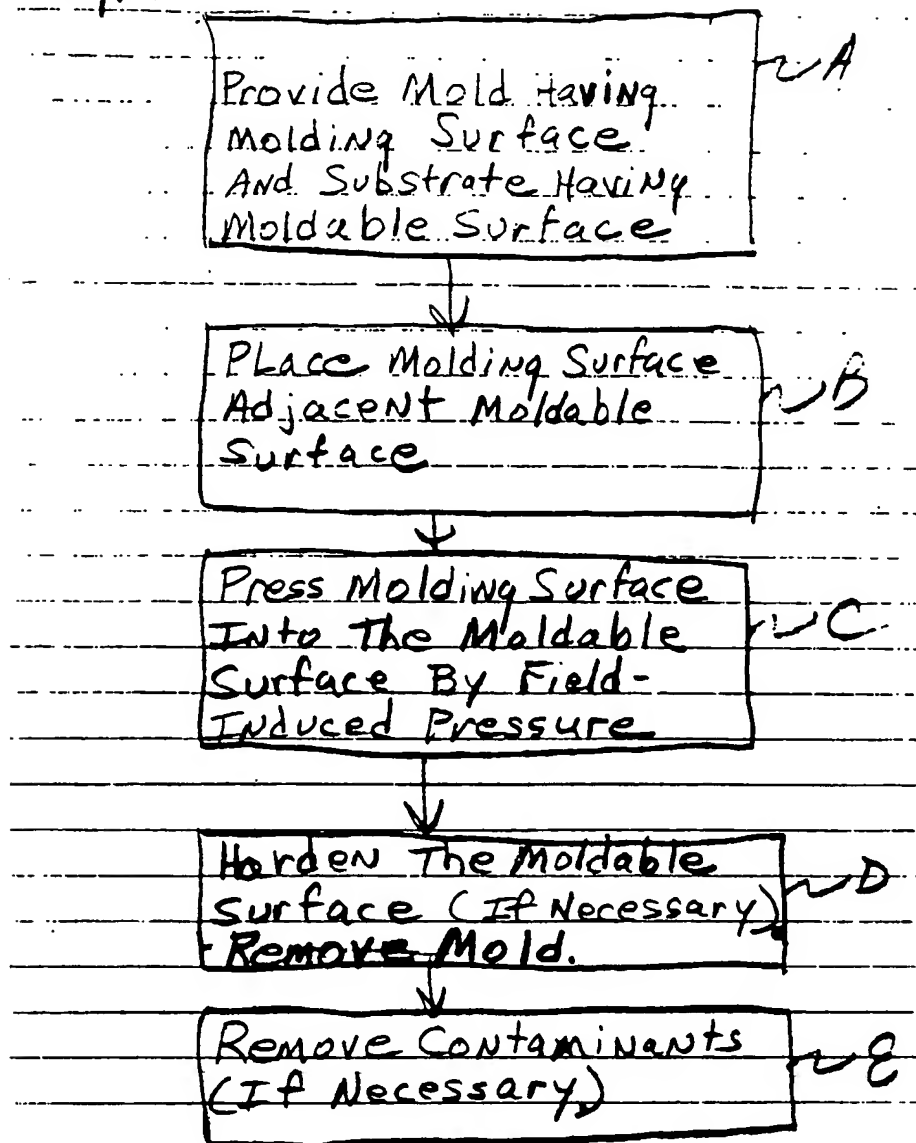 A
Provide Mold Having
Molding Surface
And Substrate Having
Moldable Surface
B
Place Molding Surface
Adjacent Moldable
Surface
C
Press Molding Surface
Into The Moldable
Surface By Field-
Induced Pressure
D
Harden The Moldable
Surface (If Necessary).
Remove Mold.
E
Remove Contaminants
(If Necessary)